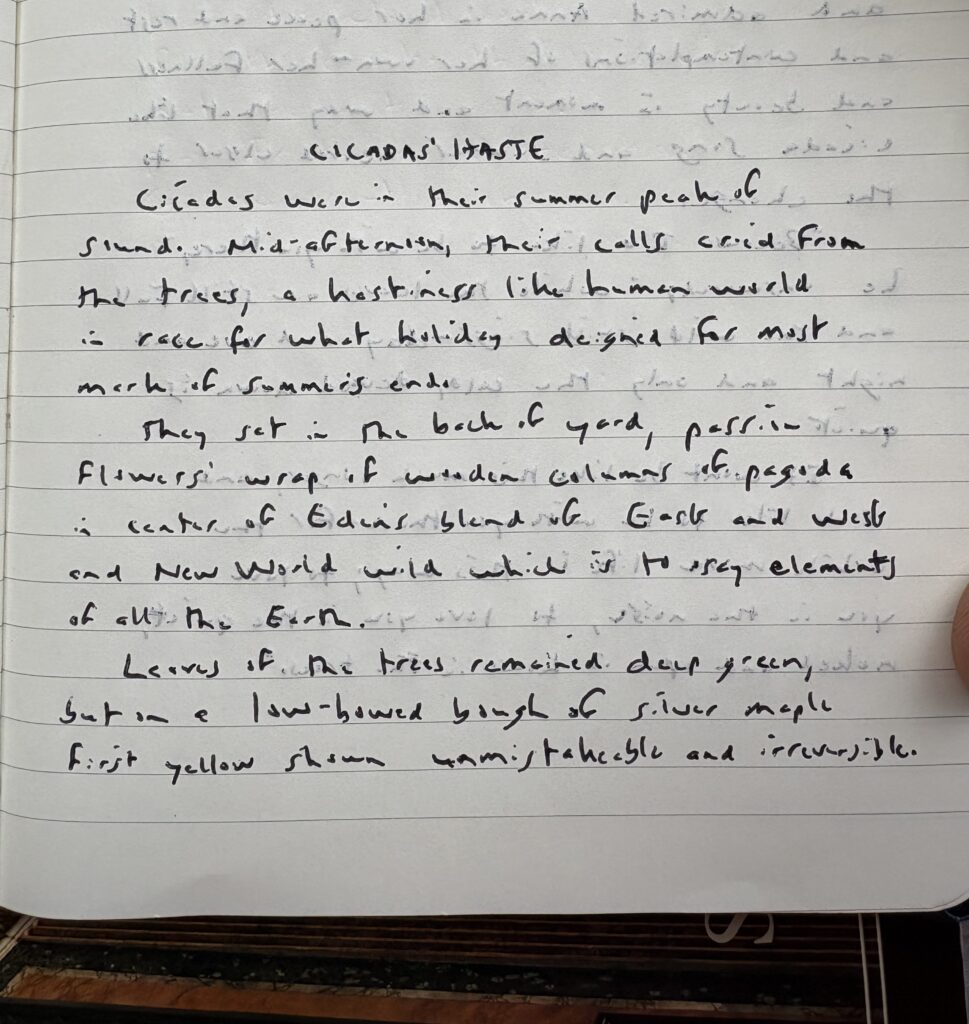 CICADAS' HASTE
Cicadas were in their summer peak of
sound. Mid-afternoon, their calls cried from
the trees, a hastiness like human world
in race for what holiday deigned for most
mark of summer's end.
They sat in the back of yard, passion
flowers' wrap of wooden columns of pagoda
in center of Eden's blend of East and West
and New World wild which is to say elements
of all the Earth.
Leaves of the trees remained deep green,
but on a low-bowed bough of silver maple
first yellow shown unmistakeable and irreversible.